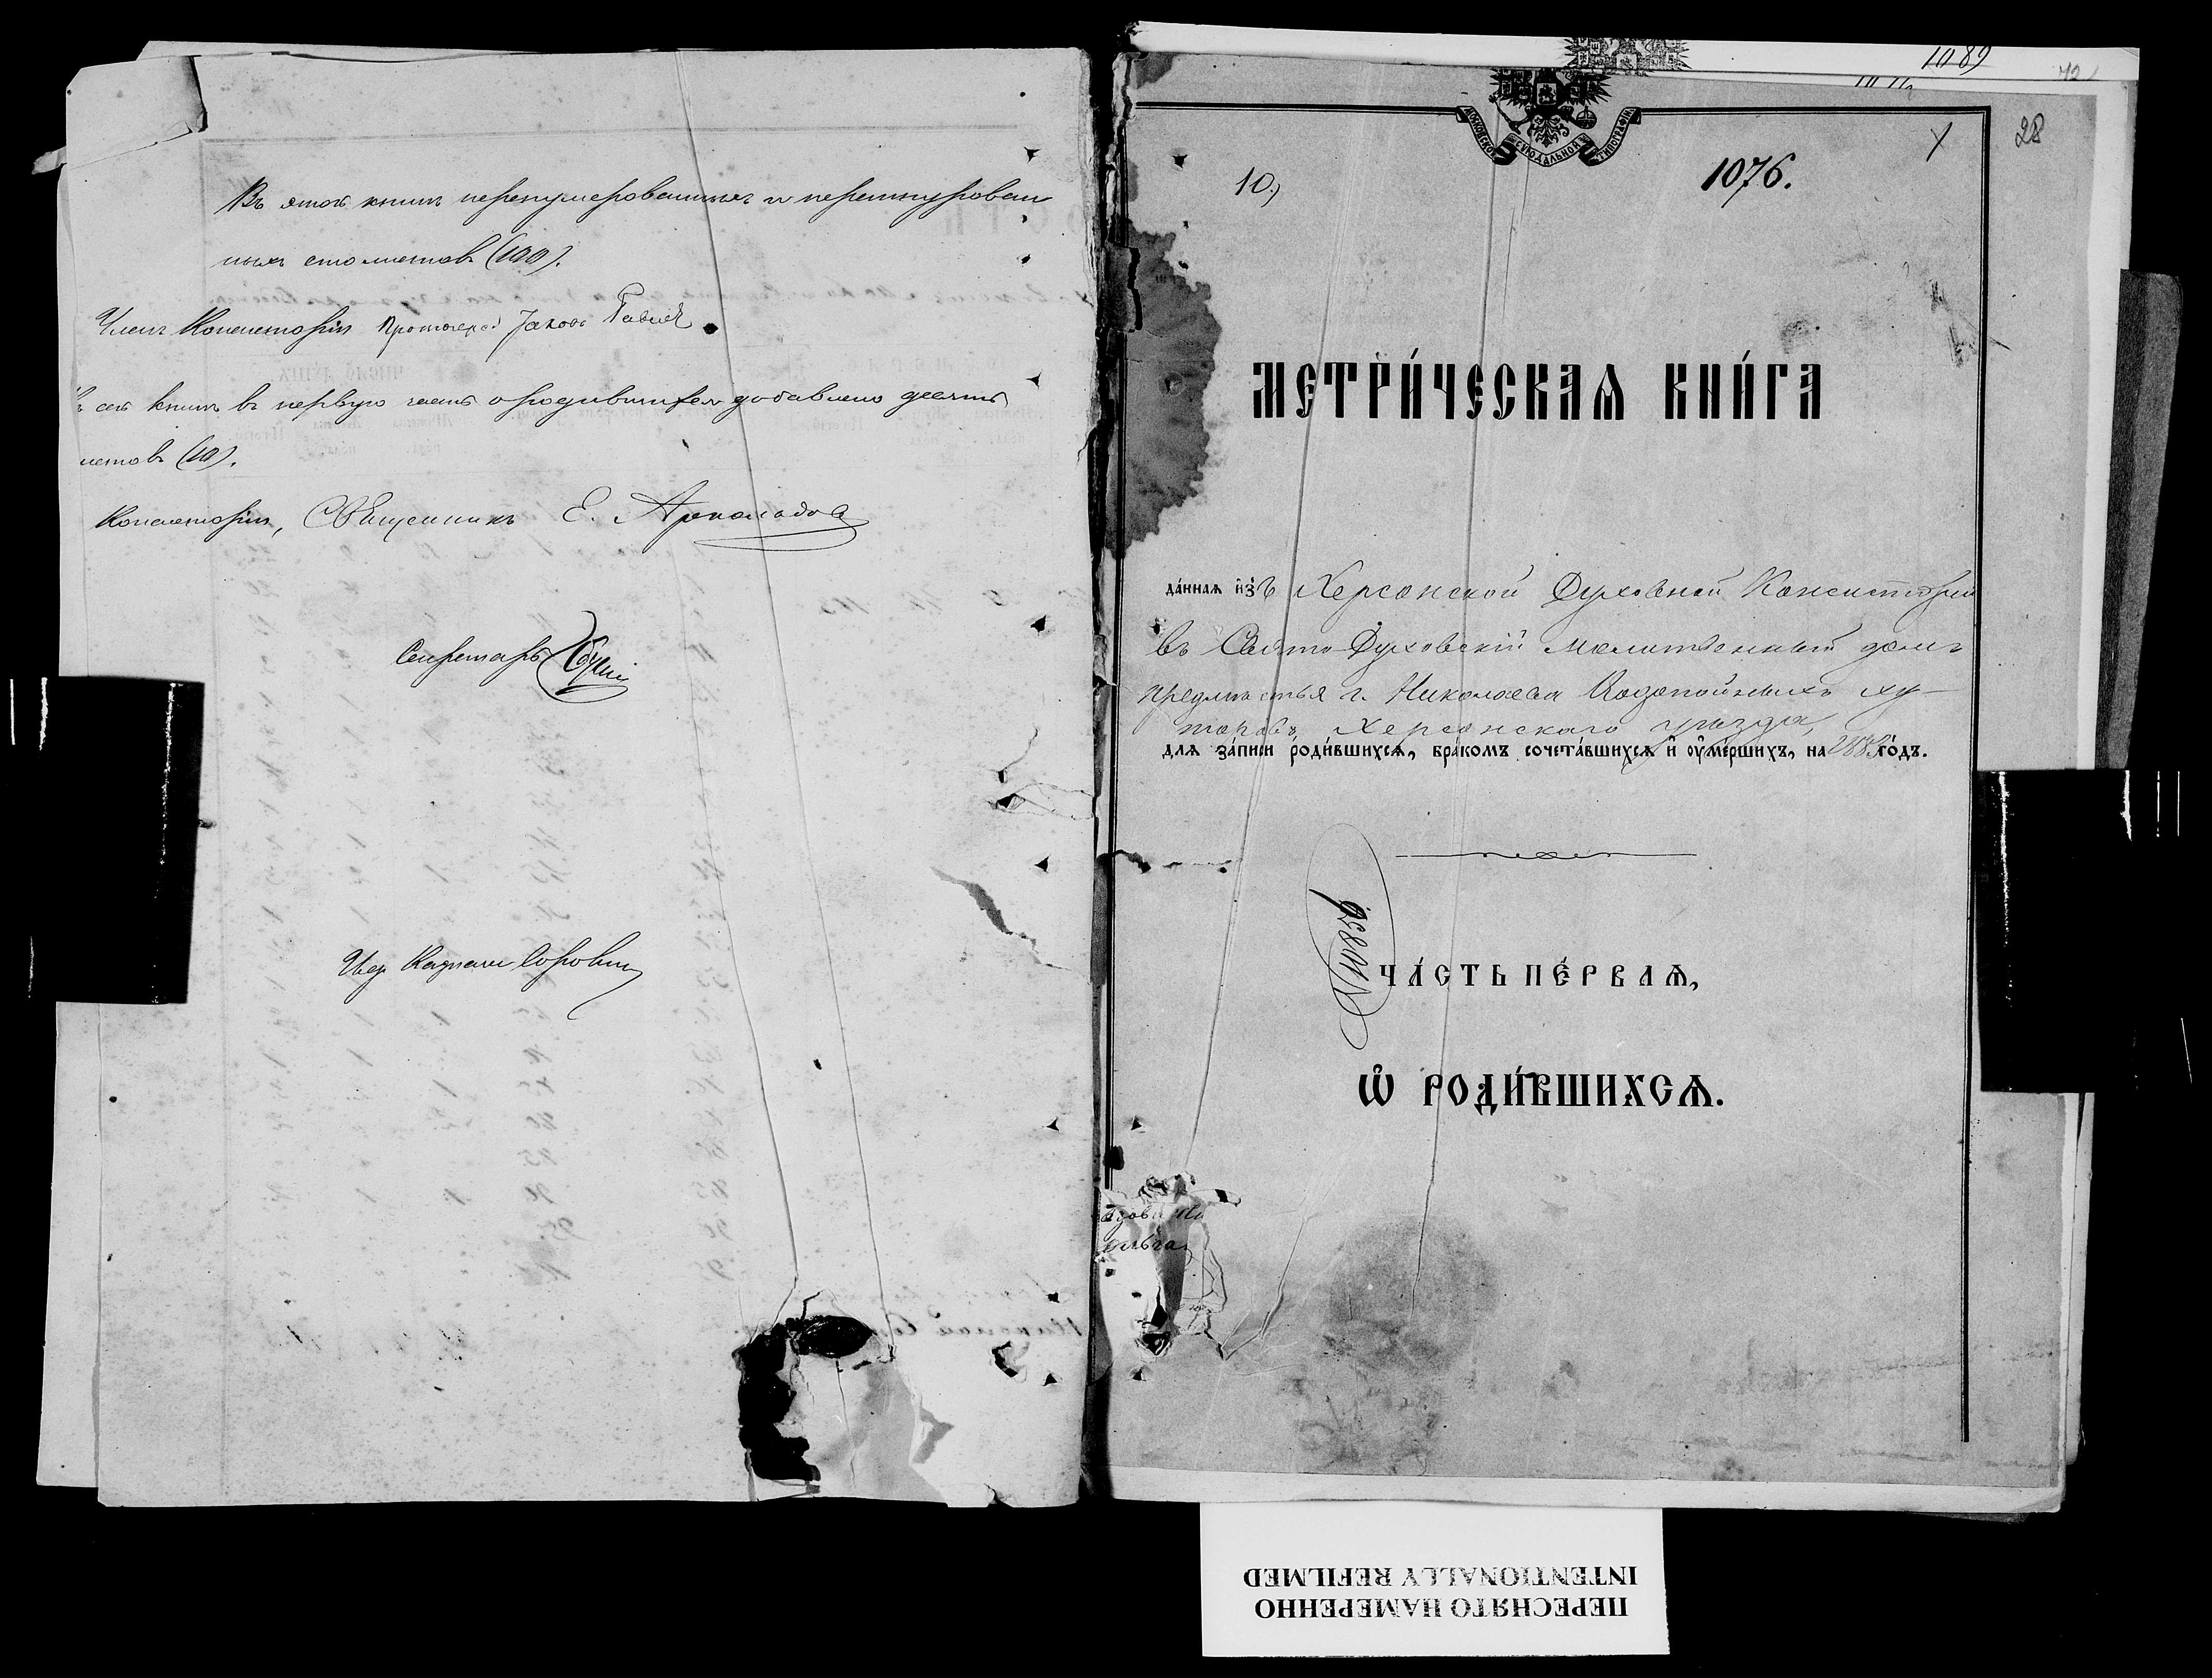 Въ этой книгѣ перенумерованныхъ и перешнурован
ныхъ сто листовъ (100).
Членъ Консисторіи Протоіерей Іаковъ
сей книгѣ въ первую часть о родившихся добавлено десять
листовъ (10).
Консисторіи, Священникъ Е.
Секретарь
1089
28
МОСКОВСКОЙ СѴНОДАЛЬНОЙ ТИПОГРАФІИ
10,
1076.
МЕТРИ́ЧЕСКАѦ КНИ́ГА
да́ннаѧ и҆зъ Херсонской Духовной Консисторіи
въ Свято-Духовскій молитвенный домъ
предмѣстья г. Николаева Водопойныхъ ху-
торовъ, Херсонскаго уѣзда,
длѧ за́писи роди́вшихсѧ, бра́комъ сочета́вшихсѧ и҆ ᲂу҆ме́ршихъ, на 1883 го́дъ.
№ 10856
ЧА́СТЬ ПЕ́РВАѦ,
Ѽ РОДИ́ВШИХСѦ.
ПЕРЕСНЯТО НАМЕРЕННО
INTENTIONALLY REFILMED